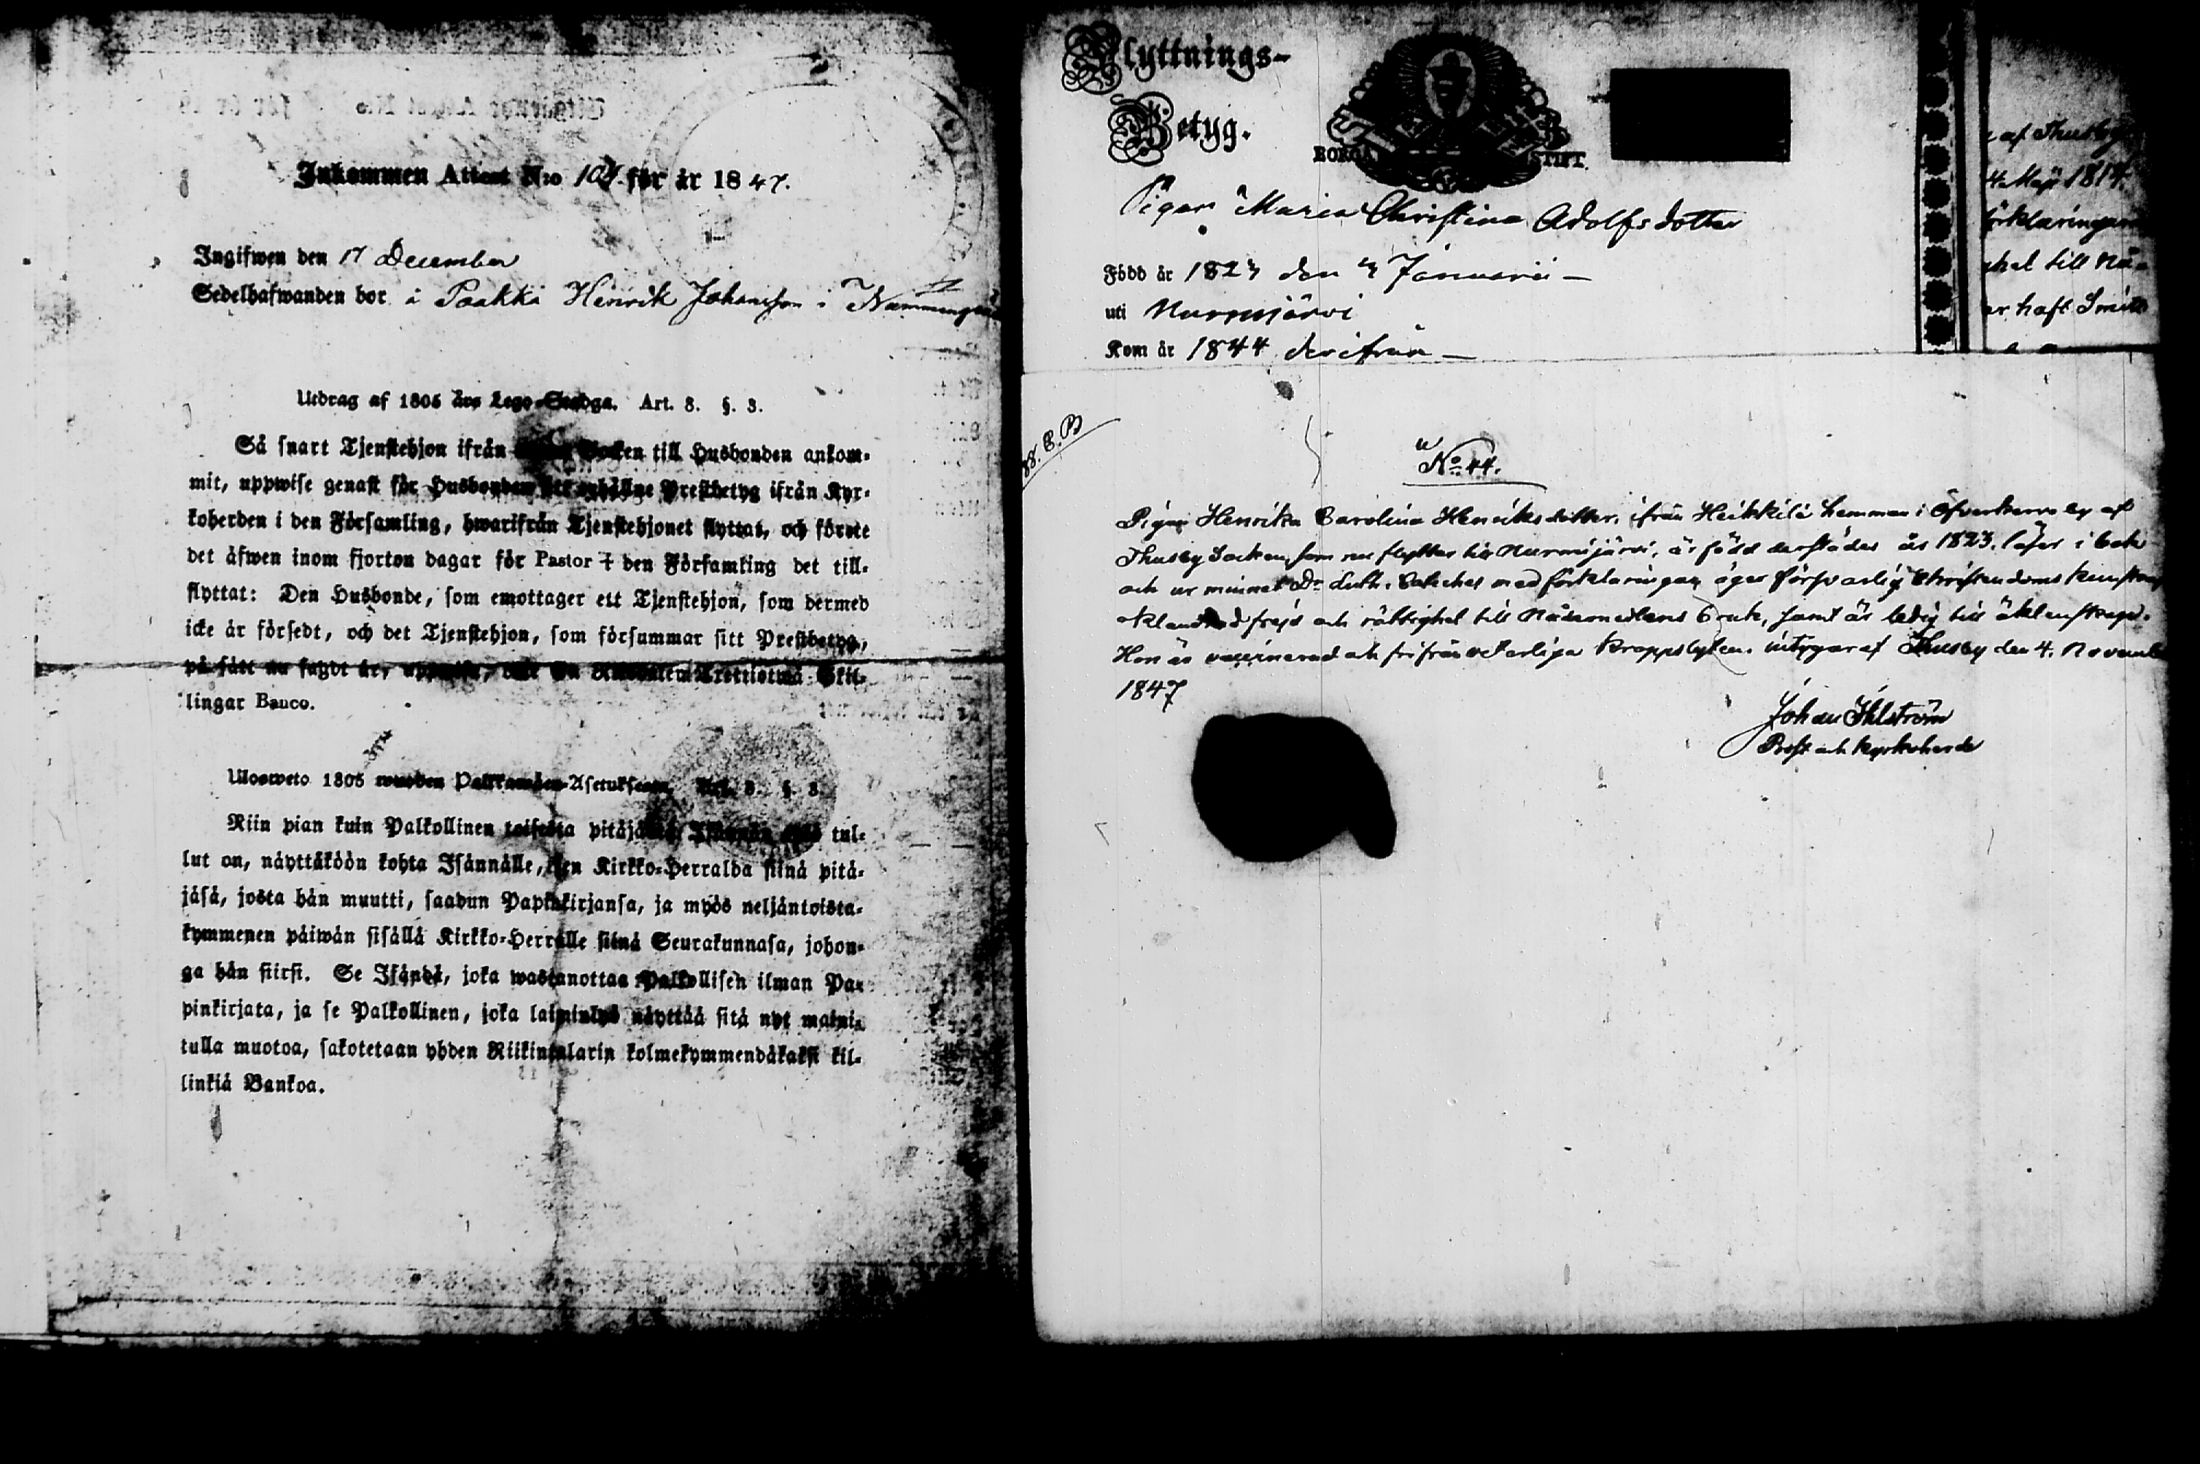 Inkommen Attest N:o 104 för år 1847.
Ingifwen den 17 December
Sedelhafwanden bor i Paakki Henrik Johansson i
Utdrag af 1805 års Lego-Stadga. Art. 8. §. 3.
Så snart Tjenstehjon ifrån Socken till Husbonden ankom-
mit, uppwise genast för Husbonden sitt erhållne Prestbetyg ifrån Kyr-
koherden i den Församling, hwarifrån Tjenstehjonet flyttat, och förete
det äfwen inom fjorton dagar för Pastor i den Församling det till-
flyttat: Den Husbonde, som emottager ett Tjenstehjon, som dermed
icke är försedt, och det Tjenstehjon, som försummar sitt Prestbetyg,
på sätt nu sagdt är, uppwisa, Skil-
lingar Banco.
Ulosweto 1805 wuoden Palkawäen-Asetuksesta. Art. 8. §. 3.
Niin pian kuin Palkollinen toisesta pitäjästä tul-
lut on, näyttäköön kohta Isännälle, sen Kirkko-Herralda siinä pitä-
jäsä, josta hän muutti, saadun Papinkirjansa, ja myös neljäntoista-
kymmenen päiwän sisällä Kirkko-Herralle siinä Seurakunnasa, johon-
ga hän siirsi. Se Isändä, joka wastanottaa Palkollisen ilman Pa-
pinkirjata, ja se Palkollinen, joka laiminlyö näyttää sitä nyt maini-
tulla muotoa, sakotetaan yhden Riikintalarin kolmekymmendäkaksi kil-
linkiä Bankoa.
Flyttnings-
Betyg.
BORGÅ STIFT.
Pigan Maria Christina Adolfsdotter
Född år 1827 den Januarii
uti Nurmijärvi
Kom år 1844 derifrån
af Thusby
4 Maji
förklaringar
till Nå-
haft
No 44.
Pigan Henrika Carolina Henriksdotter, ifrån Heikkilä hemman i Öfverkervo by af
Thusby Socken, som nu flyttar till Nurmijärvi, är född derstädes år 1823. läser i bok
och ur minnet Dr Luth. Catches med förklaringar, äger försvarlig Christendoms kunskap
oklandrad frejd och rättighet till Nådemedlens bruk, samt är ledig till äktenskap.
Hon är vaccinerad och fri från veterliga kroppslyten. intygar af Thusby den 4. November
1847
Johan Ihlström
Prost och Kyrkoherde